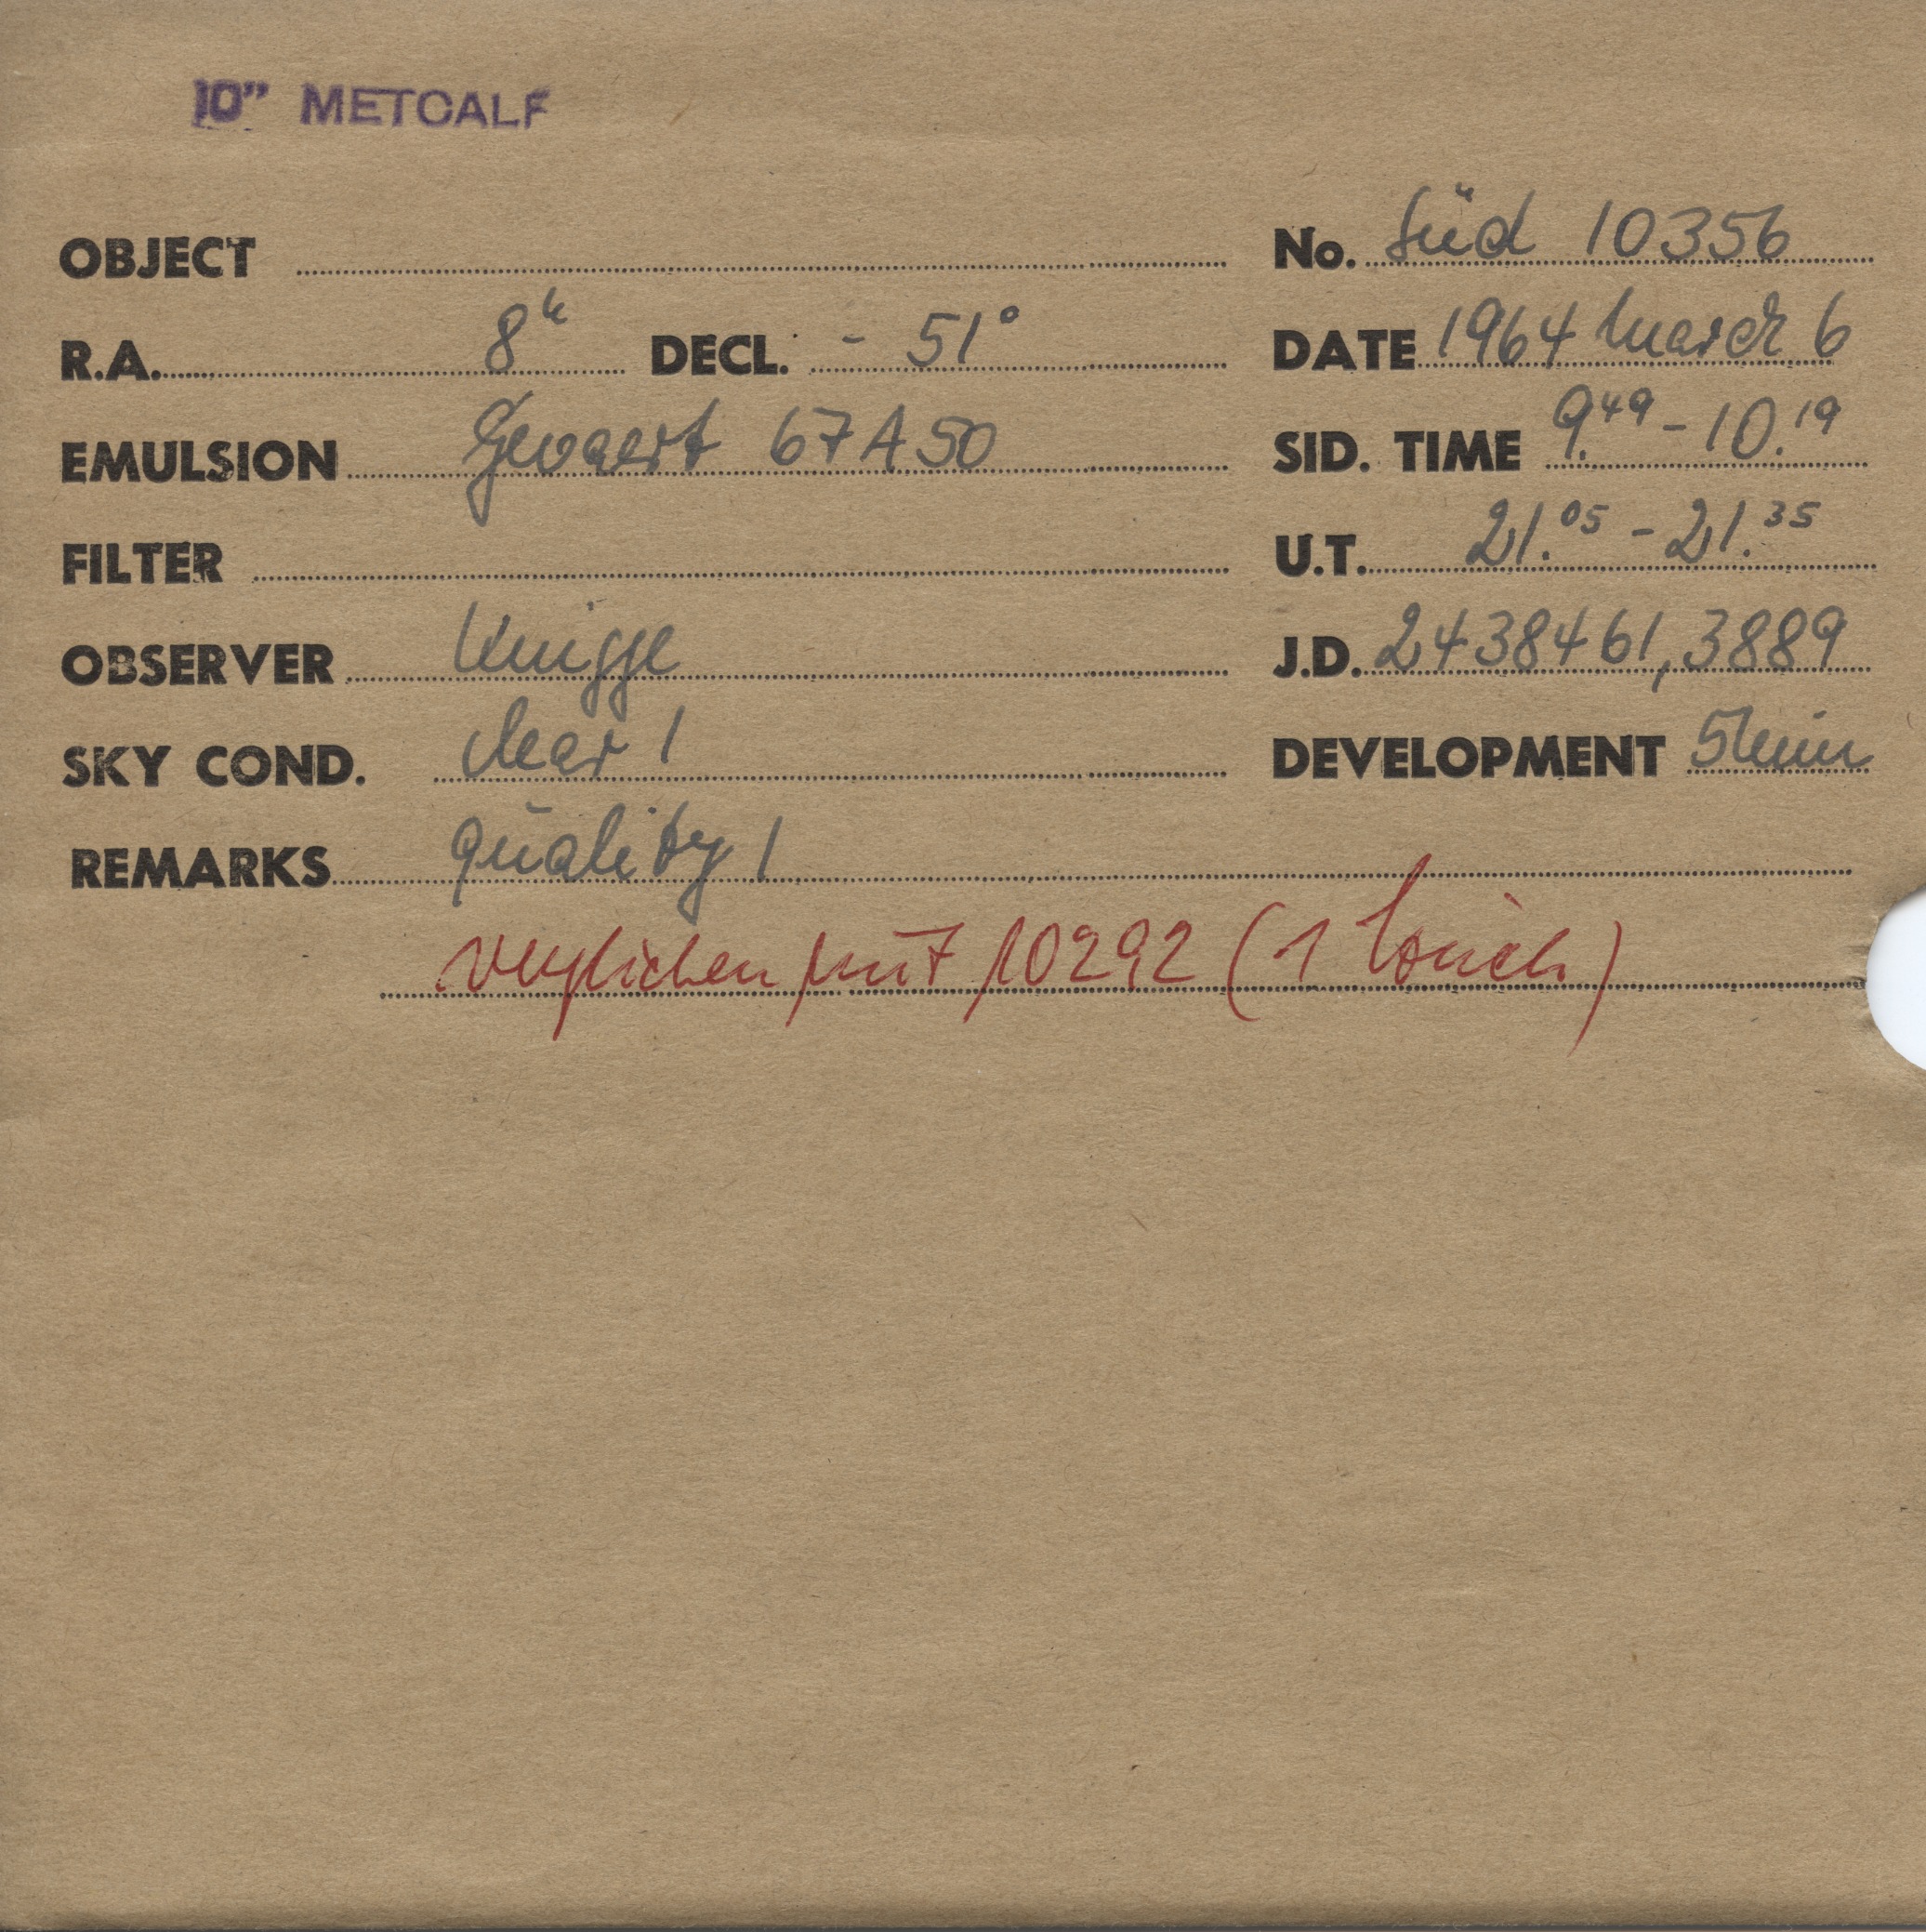 10" METCALF
OBJECT
No. Süd 10356
R.A. 8h DECL. - 51°
DATE 1964 March 6
EMULSION Gevaert 67A50
SID. TIME 9.49 - 10.19
FILTER
U.T. 21.05 - 21.35
OBSERVER Knigge
J.D. 2438461,3889
SKY COND. clear 1
DEVELOPMENT 5 min
REMARKS quality 1
verglichen mit 10292 (1